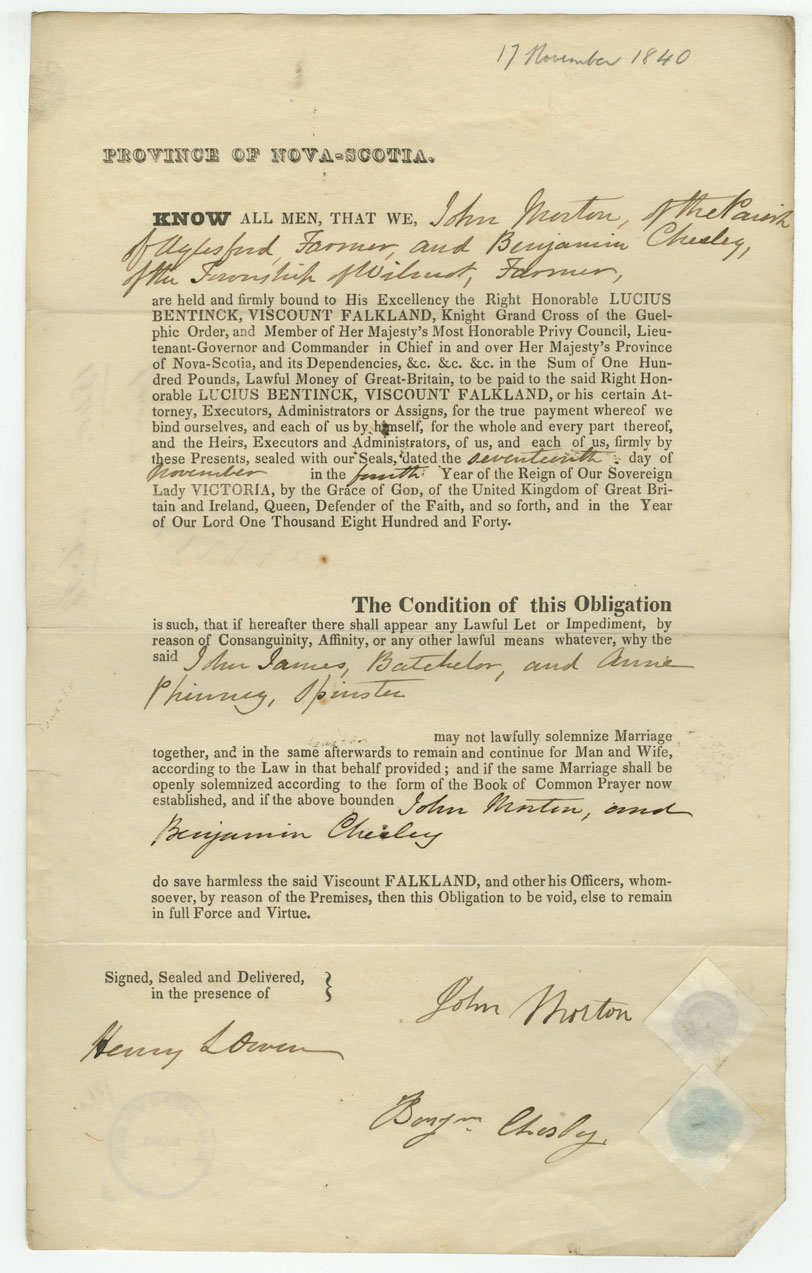 17 November 1840
PROVINCE OF NOVA-SCOTIA.
KNOW ALL MEN, THAT WE, John Morton, of the Parish
of Aylesford, Farmer, and Benjamin Chesley,
of the Township of Wilmot, Farmer,
are held and firmly bound to His Excellency the Right Honorable LUCIUS
BENTINCK, VISCOUNT FALKLAND, Knight Grand Cross of the Guel-
phic Order, and Member of Her Majesty's Most Honorable Privy Council, Lieu-
tenant-Governor and Commander in Chief in and over Her Majesty's Province
of Nova-Scotia, and its Dependencies, &c. &c. &c. in the Sum of One Hun-
dred Pounds, Lawful Money of Great-Britain, to be paid to the said Right Hon-
orable LUCIUS BENTINCK, VISCOUNT FALKLAND, or his certain At-
torney, Executors, Administrators or Assigns, for the true payment whereof we
bind ourselves, and each of us by himself, for the whole and every part thereof,
and the Heirs, Executors and Administrators, of us, and each of us, firmly by
these Presents, sealed with our Seals, dated the seventeenth day of
November in the fourth Year of the Reign of Our Sovereign
Lady VICTORIA, by the Grace of GOD, of the United Kingdom of Great Bri-
tain and Ireland, Queen, Defender of the Faith, and so forth, and in the Year
of Our Lord One Thousand Eight Hundred and Forty.
The Condition of this Obligation
is such, that if hereafter there shall appear any Lawful Let or Impediment, by
reason of Consanguinity, Affinity, or any other lawful means whatever, why the
said John James, Batchelor, and Anne
Phinney, Spinster
may not lawfully solemnize Marriage
together, and in the same afterwards to remain and continue for Man and Wife,
according to the Law in that behalf provided; and if the same Marriage shall be
openly solemnized according to the form of the Book of Common Prayer now
established, and if the above bounden John Morton, and
Benjamin Chesley
do save harmless the said Viscount FALKLAND, and other his Officers, whom-
soever, by reason of the Premises, then this Obligation to be void, else to remain
in full Force and Virtue.
Signed, Sealed and Delivered,
in the presence of
John Morton
Henry L Owen
Benjn Chesley